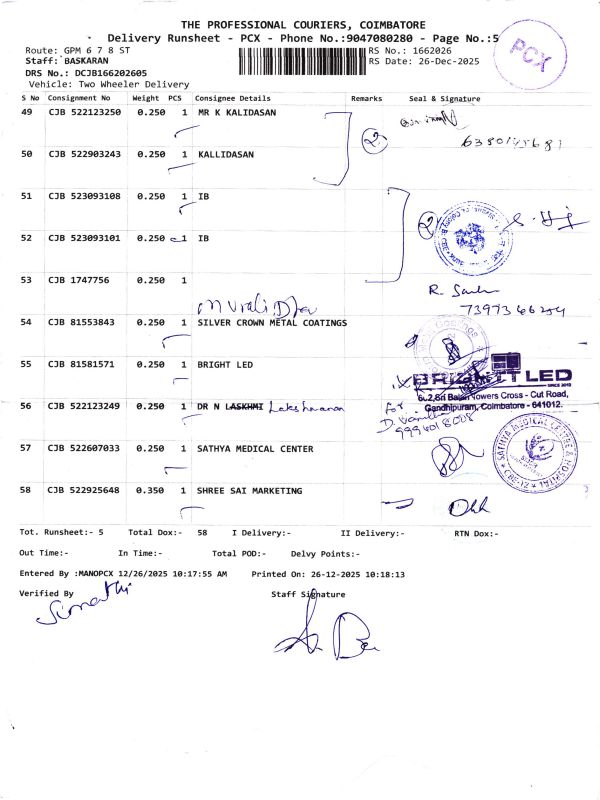 THE PROFESSIONAL COURIERS, COIMBATORE
Delivery Runsheet - PCX - Phone No.:9047080280 - Page No.:5
PCX
Route: GPM 6 7 8 ST
RS No.: 1662026
Staff: BASKARAN
RS Date: 26-Dec-2025
DRS No.: DCJB166202605
Vehicle: Two Wheeler Delivery
S No Consignment No Weight PCS Consignee Details Remarks Seal & Signature
49 CJB 522123250 0.250 1 MR K KALIDASAN
2
50 CJB 522903243 0.250 1 KALLIDASAN
51 CJB 523093108 0.250 1 IB
2
52 CJB 523093101 0.250 1 IB
53 CJB 1747756 0.250 1
Murali Dev
R.
54 CJB 81553843 0.250 1 SILVER CROWN METAL COATINGS
55 CJB 81581571 0.250 1 BRIGHT LED
BRIGHTT LED
SINCE 2010
Cross - Cut Road,
Gandhipuram, Coimbatore - 641012.
56 CJB 522123249 0.250 1 DR N LASKHMI Lakshmanan
for
9994018008
57 CJB 522607033 0.250 1 SATHYA MEDICAL CENTER
SATHYA MEDICAL CENTRE & HOSPITAL
CBE-12
58 CJB 522925648 0.350 1 SHREE SAI MARKETING
Tot. Runsheet:- 5 Total Dox:- 58 I Delivery:- II Delivery:- RTN Dox:-
Out Time:- In Time:- Total POD:- Delvy Points:-
Entered By :MANOPCX 12/26/2025 10:17:55 AM Printed On: 26-12-2025 10:18:13
Verified By Staff Signature